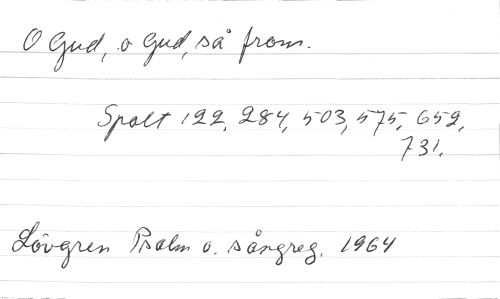 O Gud, o Gud, så from.
Spalt 122, 284, 503, 575, 652,
731.
Lövgren Psalm o. sångreg. 1964